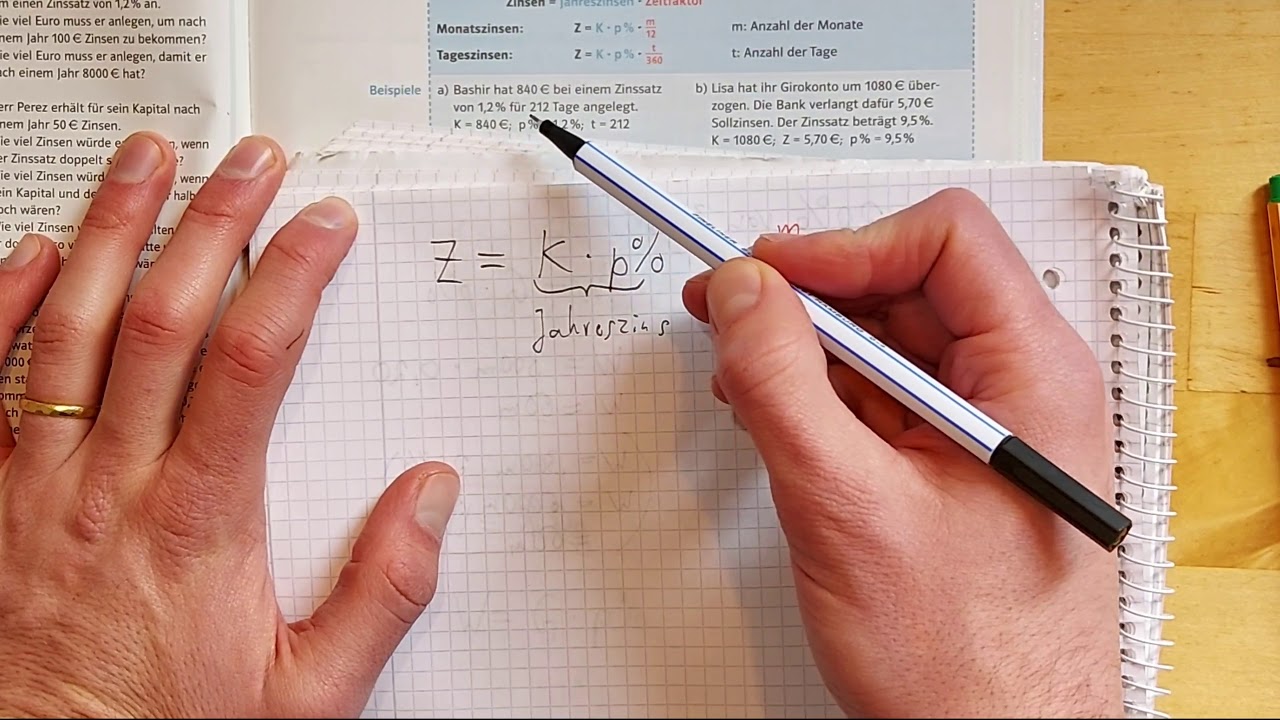 m einen Zinssatz von 1,2% an.
ie viel Euro muss er anlegen, um nach
nem Jahr 100 € Zinsen zu bekommen?
ie viel Euro muss er anlegen, damit er
ch einem Jahr 8000 € hat?
err Perez erhält für sein Kapital nach
nem Jahr 50 € Zinsen.
ie viel Zinsen würde er wenn
er Zinssatz doppelt s ?
wenn
ein Kapital und de halb
och wären?
ie viel Zinsen
Zinsen = Jahreszinsen · Zeitfaktor
Monatszinsen: Z = K · p% · m/12 m: Anzahl der Monate
Tageszinsen: Z = K · p% · t/360 t: Anzahl der Tage
Beispiele
a) Bashir hat 840 € bei einem Zinssatz
von 1,2% für 212 Tage angelegt.
K = 840 €; p% 1,2%; t = 212
b) Lisa hat ihr Girokonto um 1080 € über-
zogen. Die Bank verlangt dafür 5,70 €
Sollzinsen. Der Zinssatz beträgt 9,5%.
K = 1080 €; Z = 5,70 €; p% = 9,5%
Z = K · p% m
Jahreszins